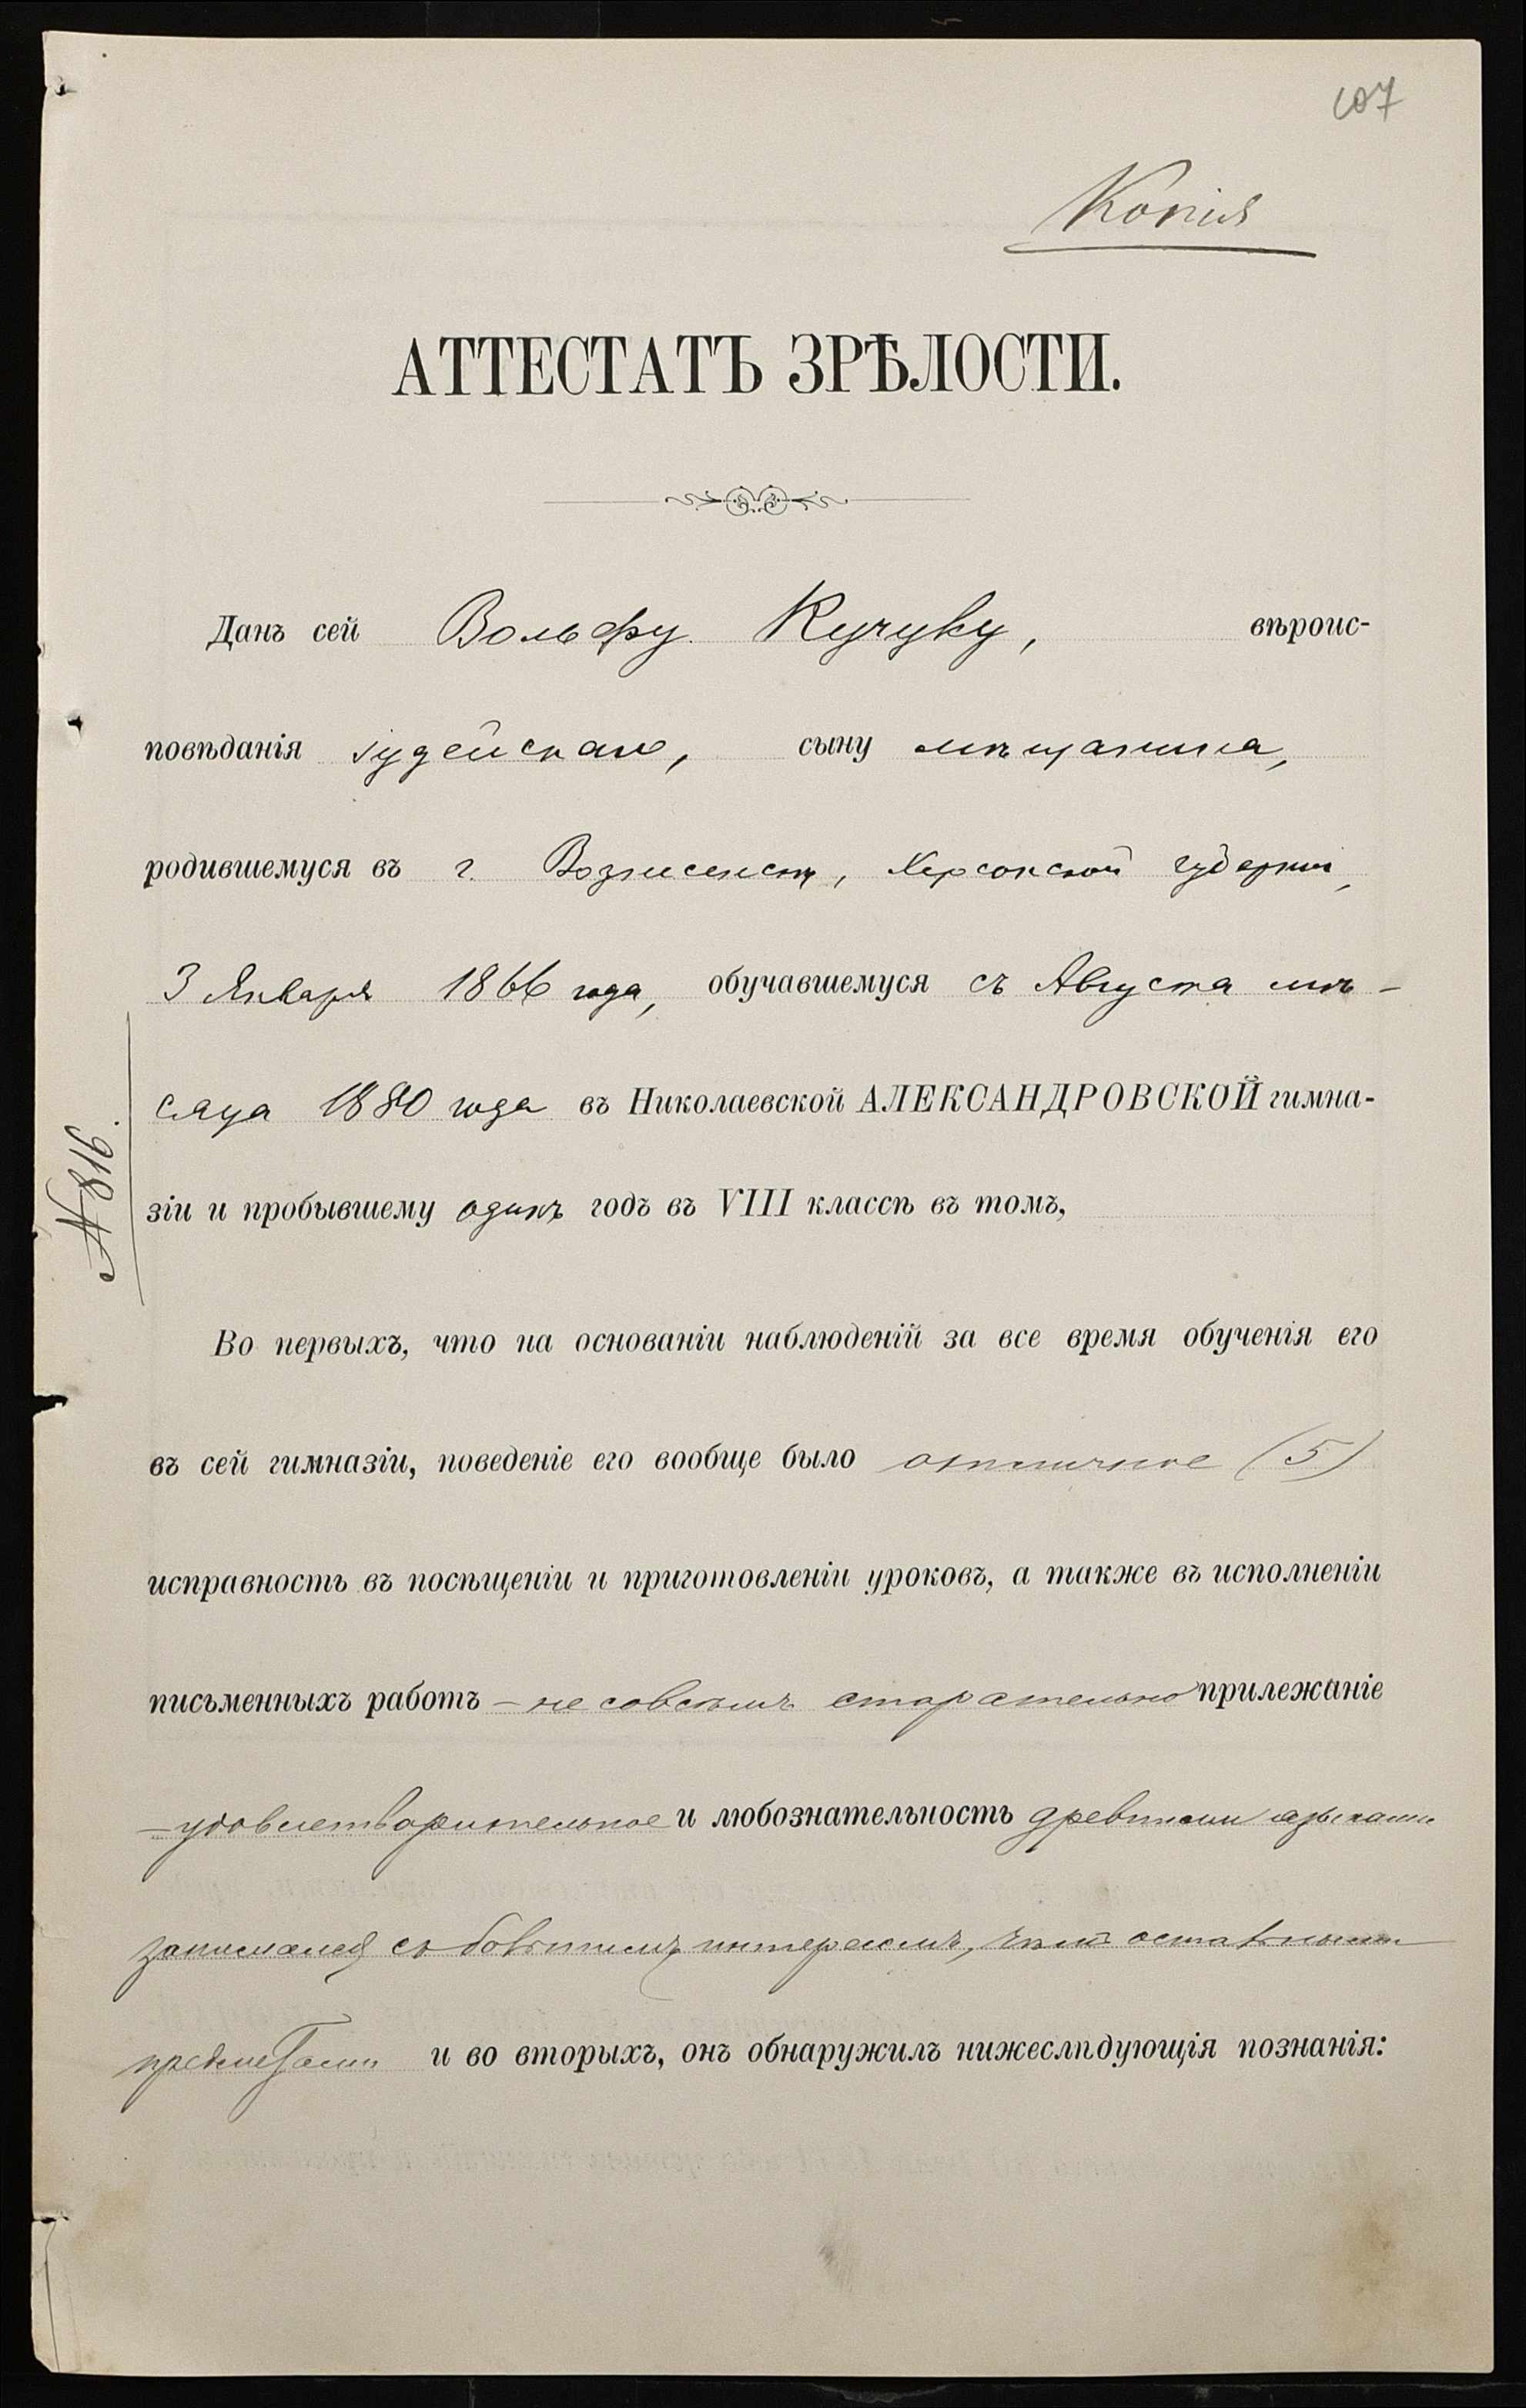 107
Копія
АТТЕСТАТЪ ЗРѢЛОСТИ.
Данъ сей Вольфу Кучуку, вѣроис-
повѣданія іудейскаго, сыну мѣщанина,
родившемуся въ г. Вознесенскѣ, Херсонской губерніи,
3 Января 1866 года, обучавшемуся съ Августа мѣ-
сяца 1880 года въ Николаевской АЛЕКСАНДРОВСКОЙ гимна-
зіи и пробывшему одинъ годъ въ VIII классѣ въ томъ,
№ 816.
Во первыхъ, что на основаніи наблюденій за все время обученія его
въ сей гимназіи, поведеніе его вообще было отличное (5)
исправность въ посѣщеніи и приготовленіи уроковъ, а также въ исполненіи
письменныхъ работъ – не совсѣмъ старательно прилежаніе
– удовлетворительное и любознательность древними языками
занимался съ большимъ интересомъ, чѣмъ остальными
предметами и во вторыхъ, онъ обнаружилъ нижеслѣдующія познанія: